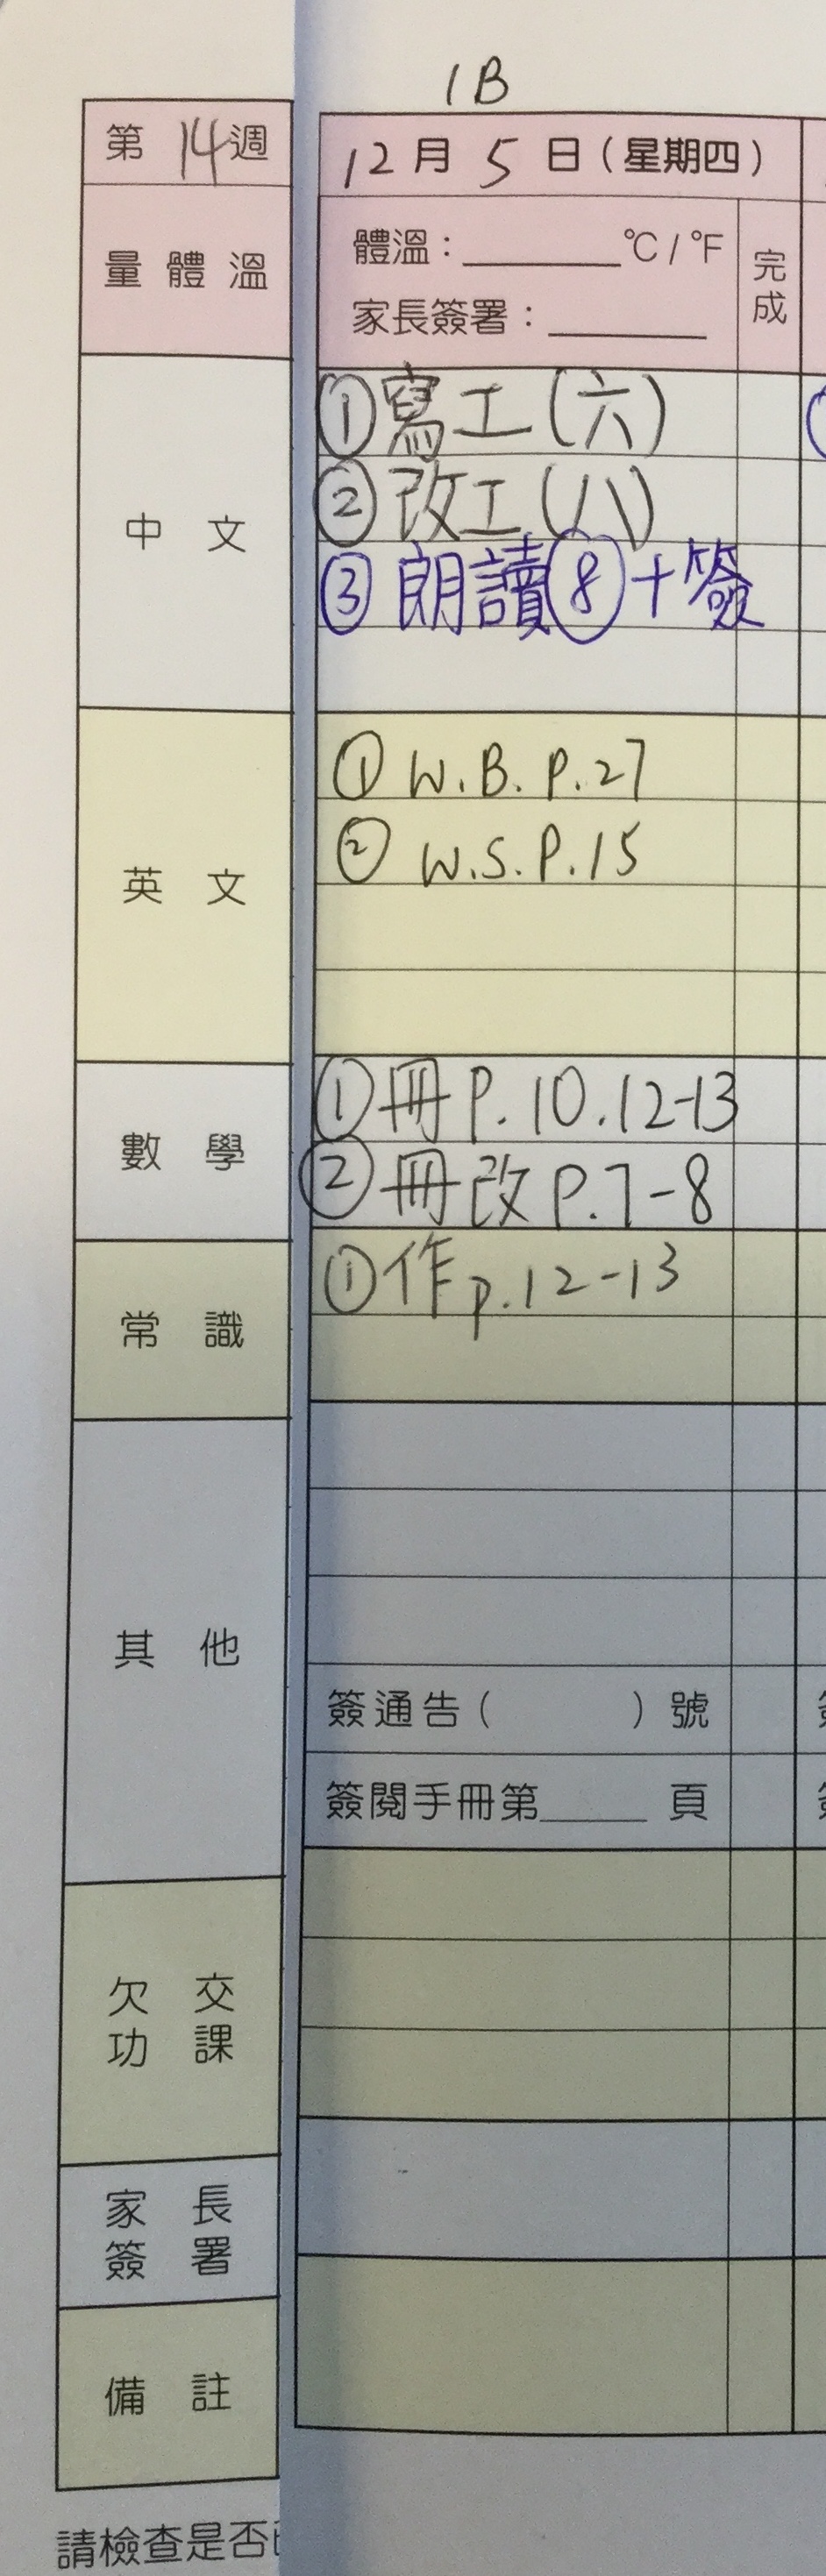 1B
第 14 週
12 月 5 日 ( 星期四 )
量體溫
體溫：______℃/℉
家長簽署：______
完成
中文
①寫工(六)
②改工(八)
③朗讀⑧+簽
英文
① W.B. P.27
② W.S. P.15
數學
①冊P.10.12-13
②冊改P.7-8
常識
①作p.12-13
其他
簽通告( ) 號
簽閱手冊第____ 頁
欠交
功課
家長
簽署
備註
請檢查是否